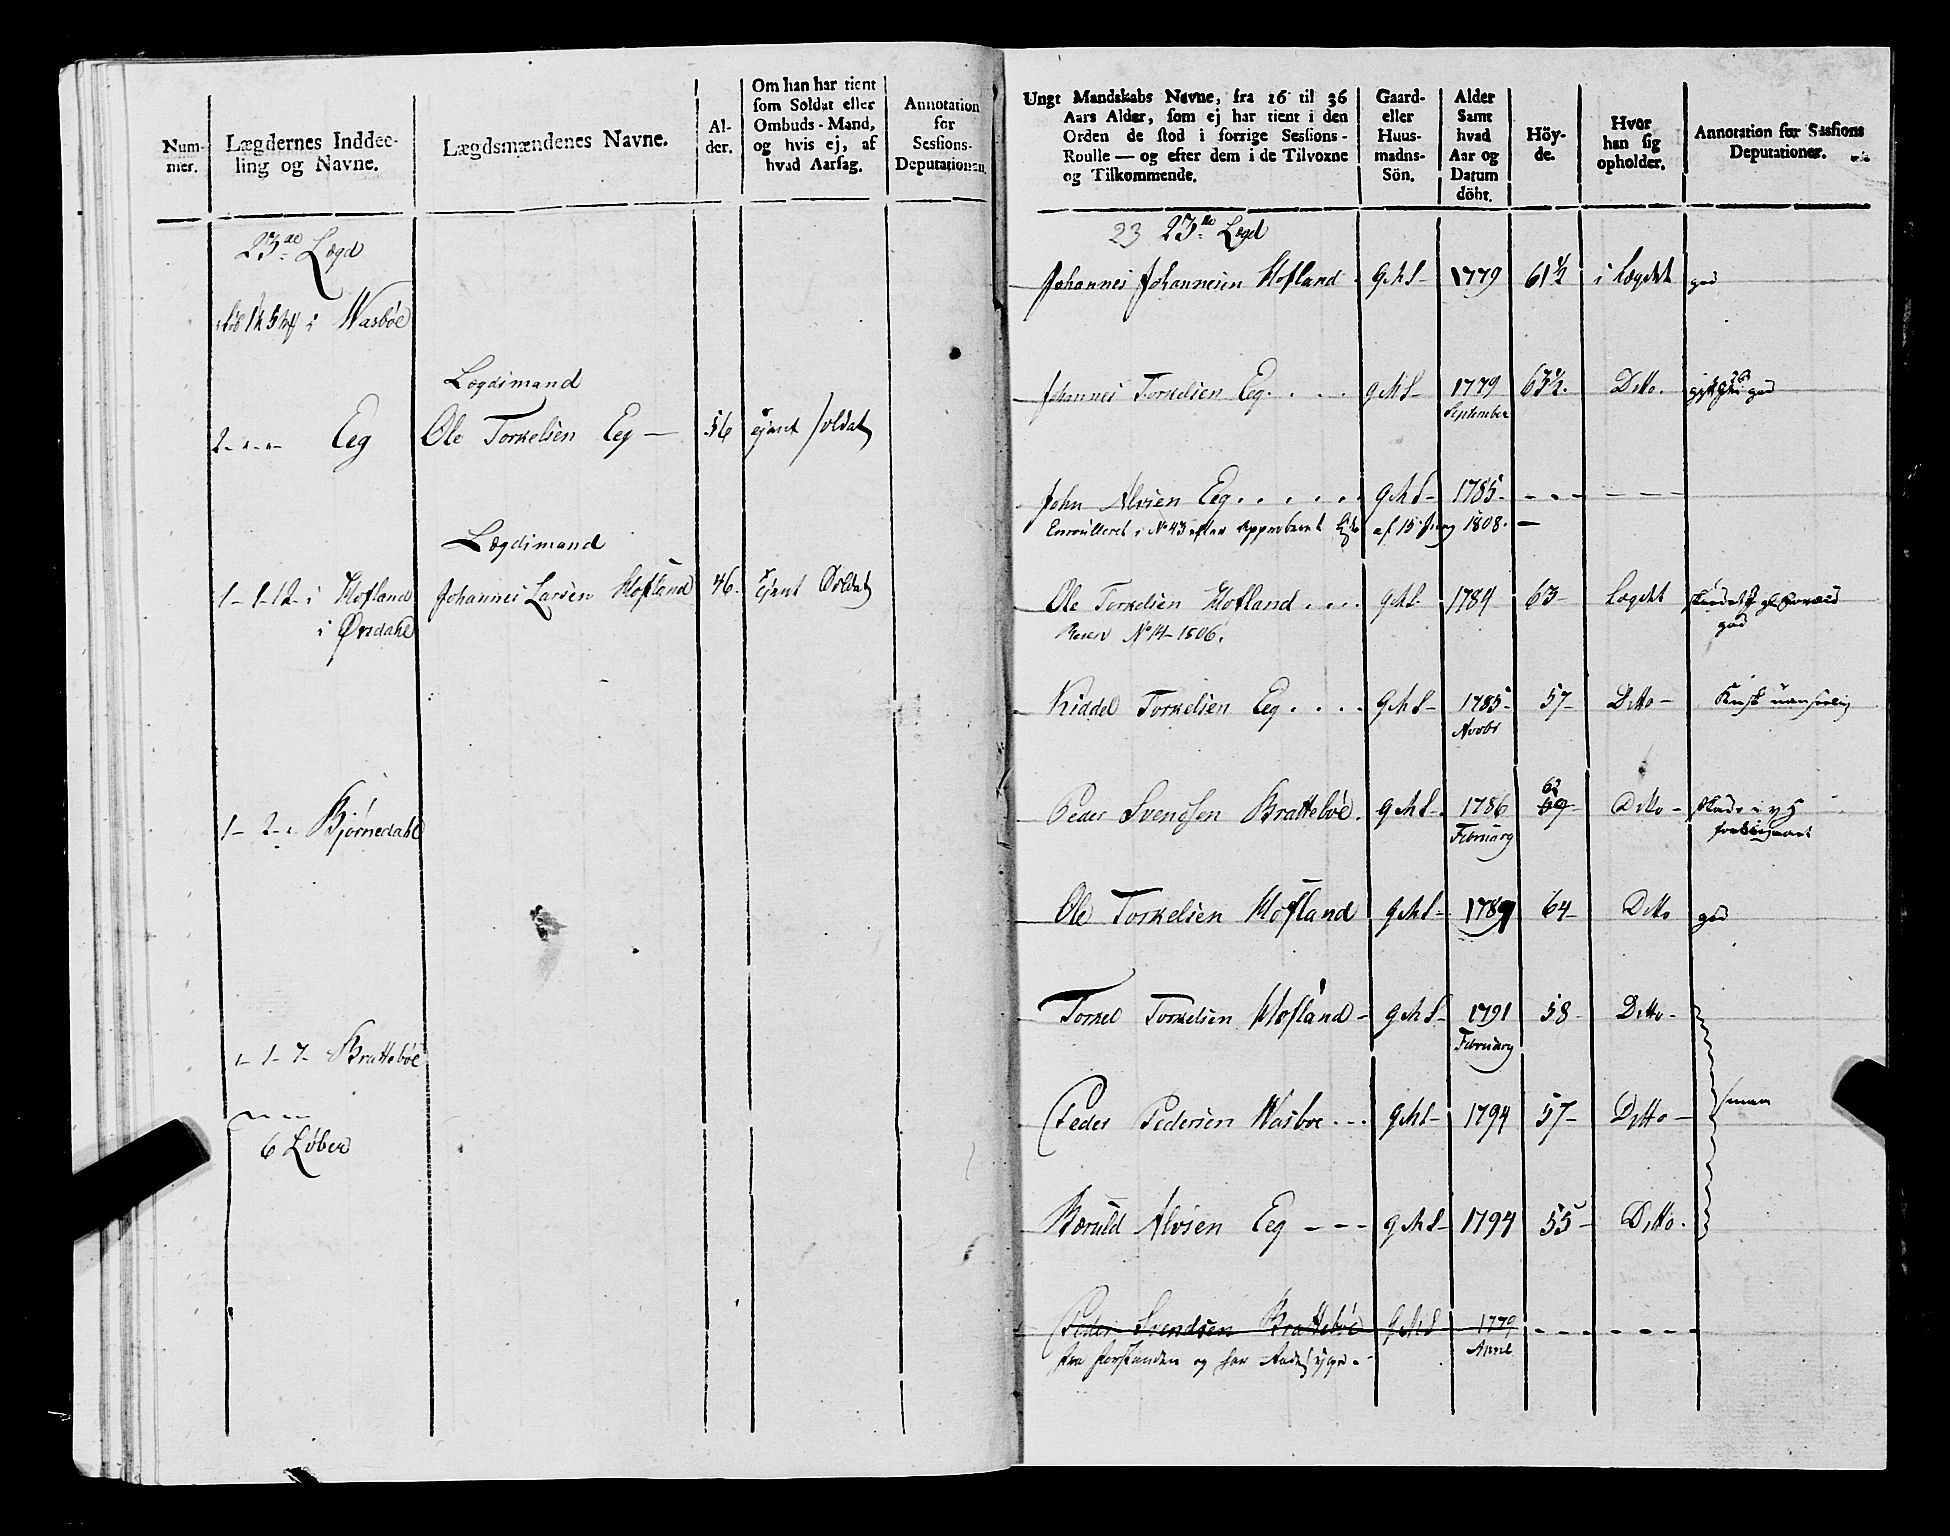 Num-
mer.
Lægdernes Inddee-
ling og Navne.
Lægdsmændenes Navne.
Al-
der.
Om han har tient
som Soldat eller
Ombuds-Mand,
og hvis ej, af
hvad Aarsag.
Annotation
for
Sessions-
Deputationen.
23de Lægd
i Wasbøe
Lægdsmand
2 - - - Eeg Ole Torkelsen Eeg — 56 ejent Soldat
Lægdsmand
1 - 1 - 12 - i Hofland Johannes Larsen Hofland 46. ejent Soldat
i Ørsdahl
1 - 2 - Bjørnedahl
1 - 7 - Brattebøe
6 Løber
Ungt Mandskabs Navne, fra 16 til 36
Aars Alder, som ej har tient i den
Orden de stod i forrige Sessions-
Roulle — og efter dem i de Tilvoxne
og Tilkommende.
Gaard-
eller
Huus-
madns-
Sön.
Alder
Samt
hvad
Aar og
Datum
döbt.
Höy-
de.
Hvor
han sig
opholder.
Annotation for Sessions
Deputationer.
23 23de Lægd
Johannes Johannesen Hofland - G M S - 1779 61 1/2 i Lægdet god
Johannes Torkelsen Eeg . . . . G M S - 1779 63 1/2. Ditto. god
September
John Alvsen Eeg . . . . . . G M S - 1785 - - - - - -
Enroulleret i No 43 efter Approberet af 15 Juny 1808. —
Ole Torkelsen Hofland . . . . G M S. 1784 63 - Lægdet
Reserv No 14 - 1806. god
Kiddel Torkelsen Eeg . . . . G M S - 1785 - 57 - Ditto -
Novbr
Peder Svendsen Brattebøe. G M S - 1786 62 59 - Ditto -
February
Ole Torkelsen Hofland G M S - 1789 64 - Ditto god
Torkel Torkelsen Hofland - G M S - 1791 58 Ditto -
February
Peder Pedersen Wasboe . - - G M S - 1794 57 - Ditto -
Bæruld Alvsen Eeg - - - G M S - 1794 55 - Ditto.
Peder Svendsen Brattebøe G M S 1779 - - - - - -
fra Forstanden og har